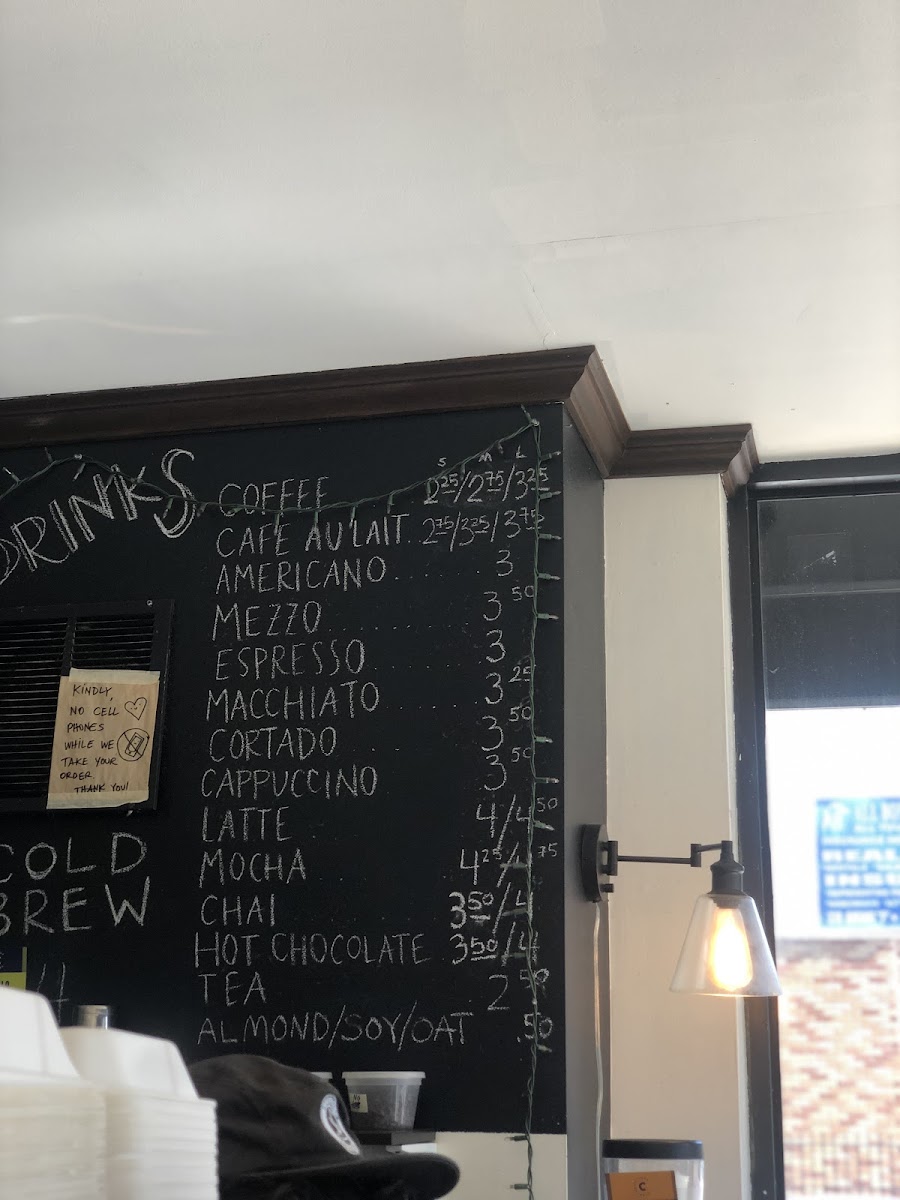 DRINKS
S M L
COFFEE 2.25/2.75/3.25
CAFE AU LAIT. 2.75/3.25/3.75
AMERICANO ...... 3
MEZZO ........ 3.50
ESPRESSO ...... 3
MACCHIATO ..... 3.25
CORTADO .... 3.50
CAPPUCCINO 3.50
LATTE 4/4.50
MOCHA 4.25/4.75
CHAI 3.50/4
HOT CHOCOLATE 3.50/4
TEA 2.50
ALMOND/SOY/OAT .50
KINDLY,
NO CELL
PHONES
WHILE WE
TAKE YOUR
ORDER
THANK YOU!
COLD
BREW
4
C